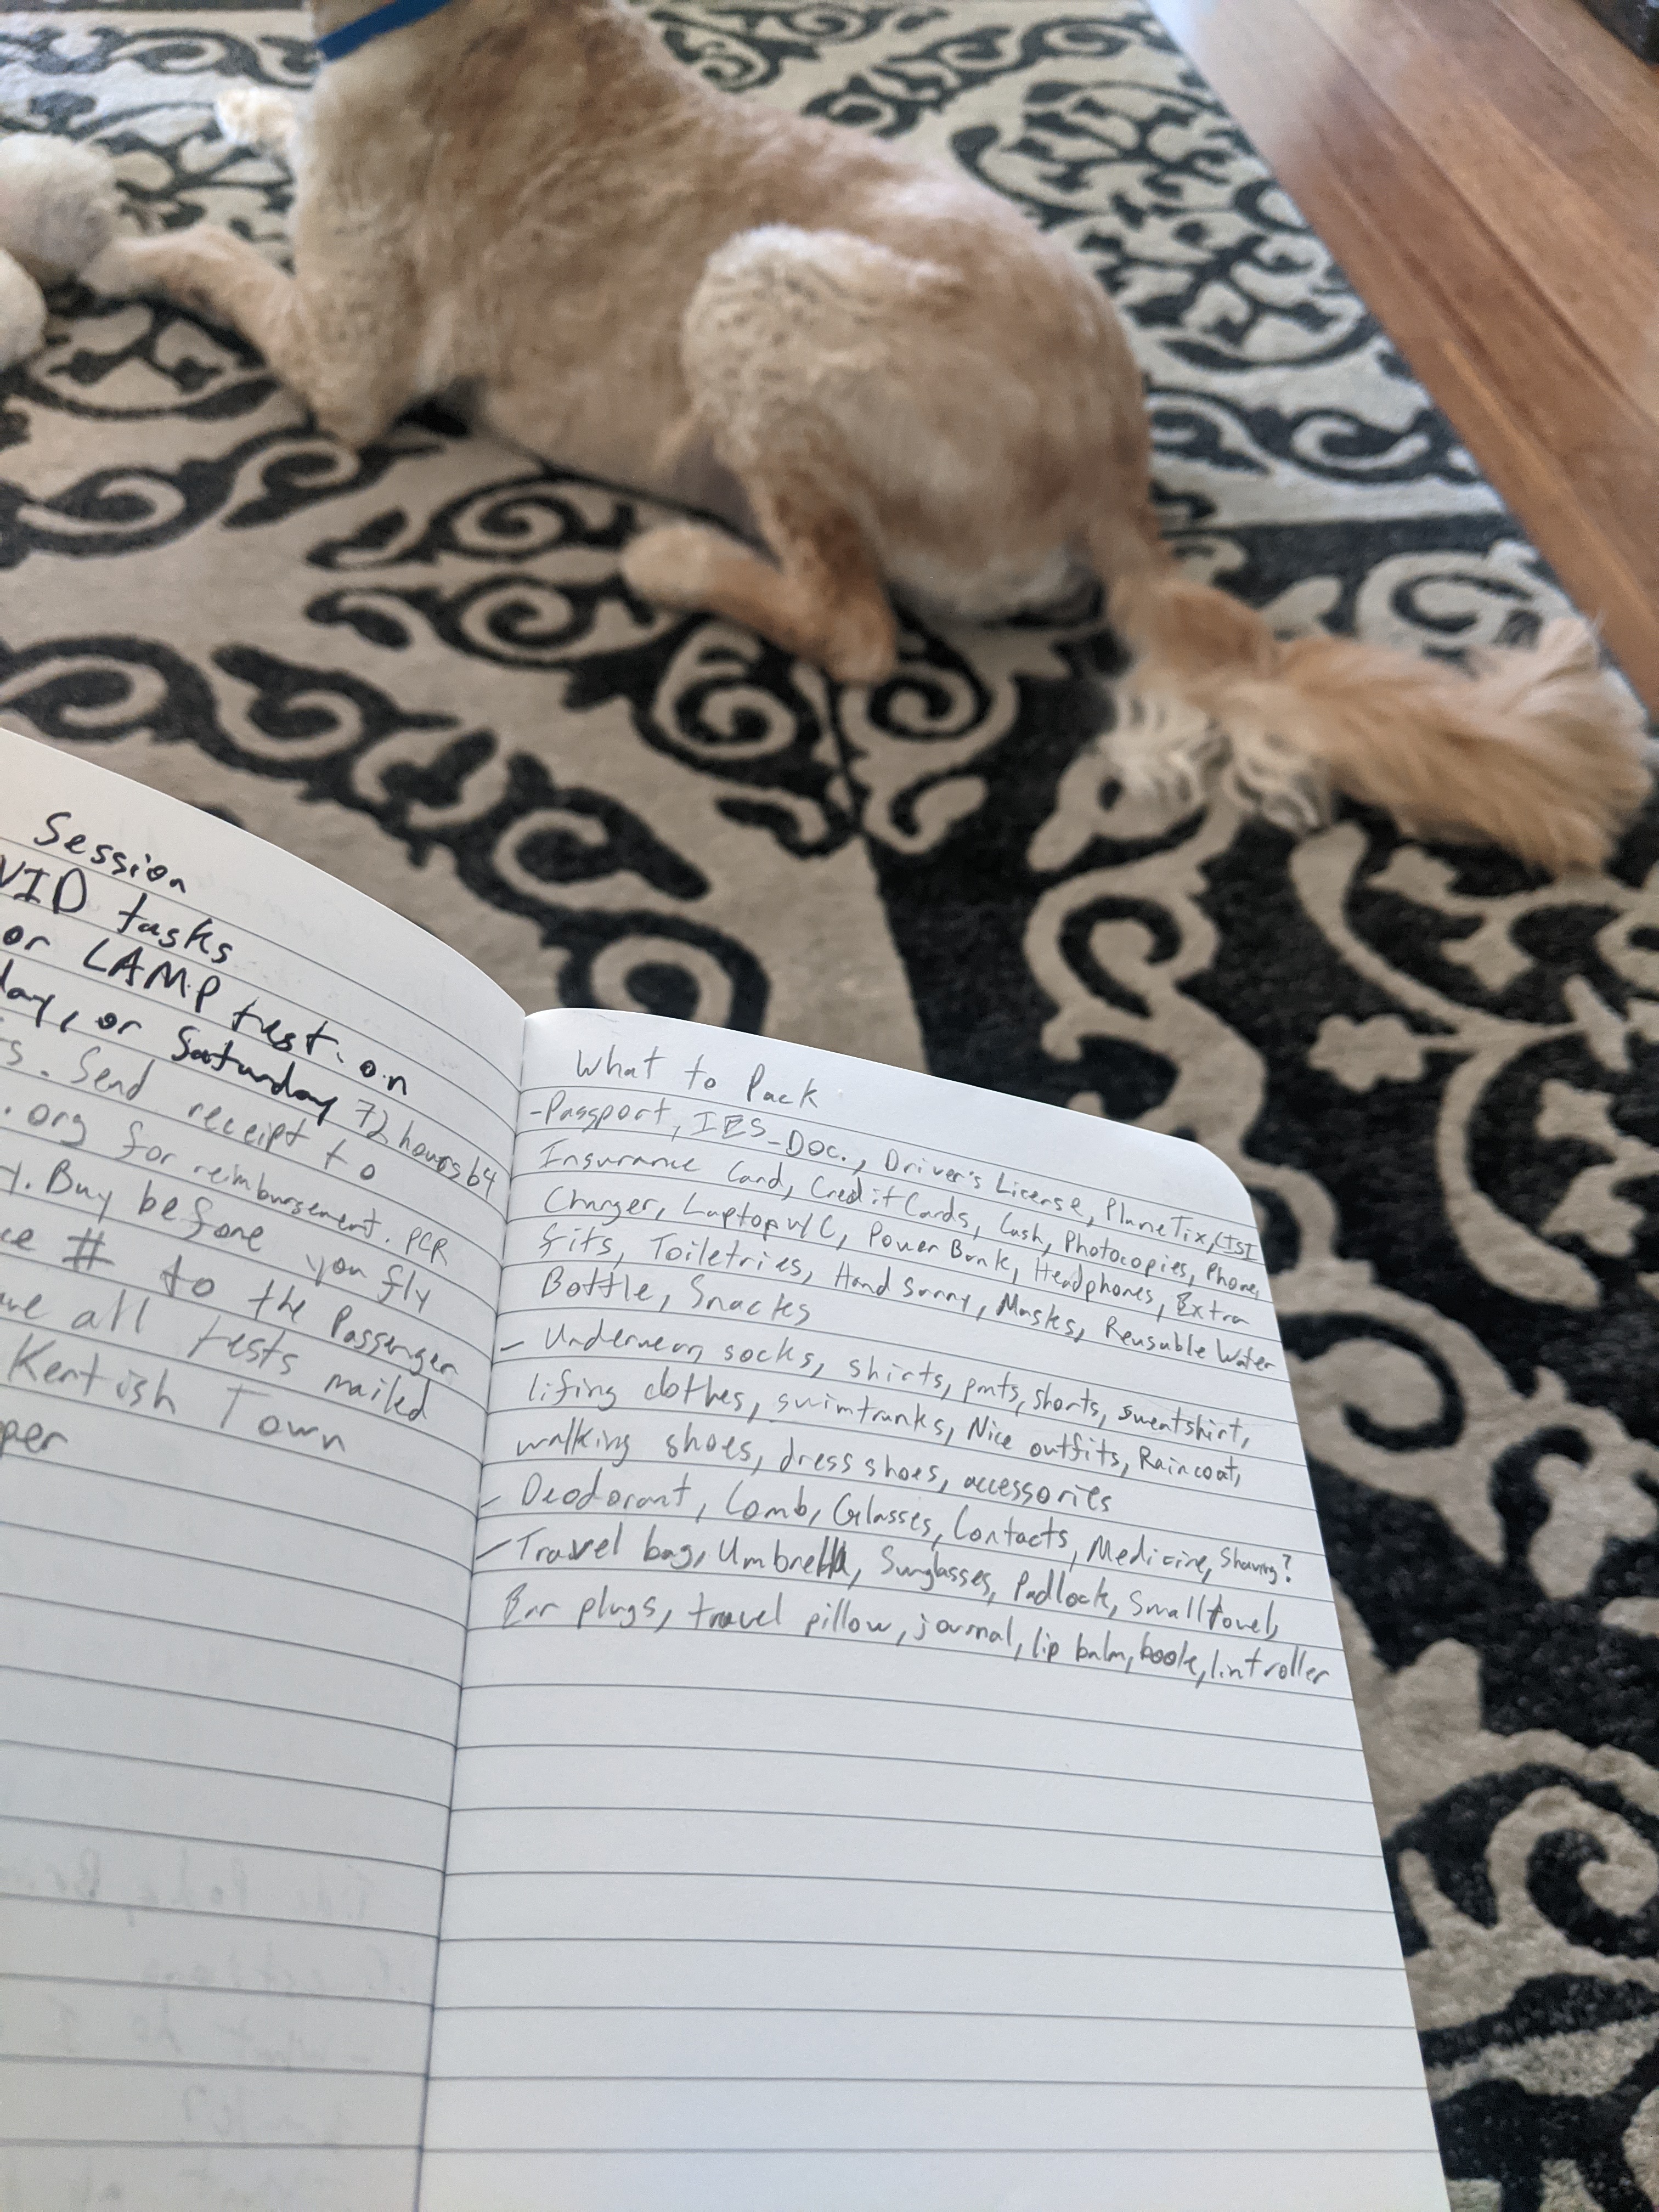 Session
VID tasks
or LAMP test. on
day, or Saturday 72 hours b4
s. Send receipt to
.org for reimbursement. PCR
y. Buy before you fly
ce # to the Passenger
ave all tests mailed
Kentish Town
per
What to Pack
-Passport, IES-Doc., Driver's License, Plane Tix, CISI
Insurance Card, Credit Cards, Cash, Photocopies, Phone,
Charger, Laptop w/C, Power Bank, Headphones, Extra
fits, Toiletries, Hand Sanny, Masks, Reusable Water
Bottle, Snacks
- Underwear, socks, shirts, pants, shorts, sweatshirt,
lifing clothes, swimtrunks, Nice outfits, Raincoat,
walking shoes, dress shoes, accessories
- Deodorant, Comb, Glasses, Contacts, Medicine, Shaving?
- Travel bag, Umbrella, Sunglasses, Padlock, Small towel,
Ear plugs, travel pillow, journal, lip balm, book, lint roller